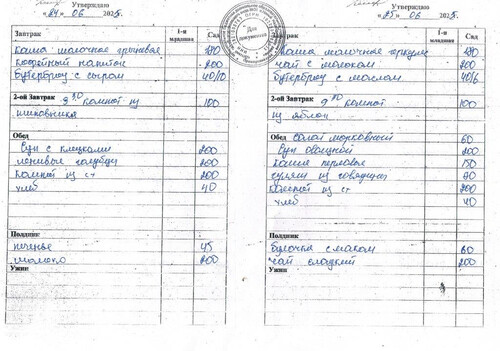 Утверждаю
«24» 06 2025г.
Завтрак 1-я младшая Сад
Каша молочная гречневая 180
кофейный напиток 200
бутерброд с сыром 40/10
2-ой Завтрак 9 30 компот из 100
шиповника
Обед
Суп с клецками 200
ленивые голубцы 200
компот из с/ф 200
хлеб 40
Полдник
печенье 45
молоко 200
Ужин
Утверждаю
«25» 06 2025г.
Завтрак 1-я младшая Сад
Каша молочная 180
чай с молоком 200
бутерброд с маслом 40/6
2-ой Завтрак 9 30 компот 100
из яблок
Обед Салат морковный 60
Суп овощной 200
каша перловая 150
гуляш из говядины 90
компот из с/ф 200
хлеб 40
Полдник
булочка с маком 60
чай сладкий 200
Ужин
Для документов